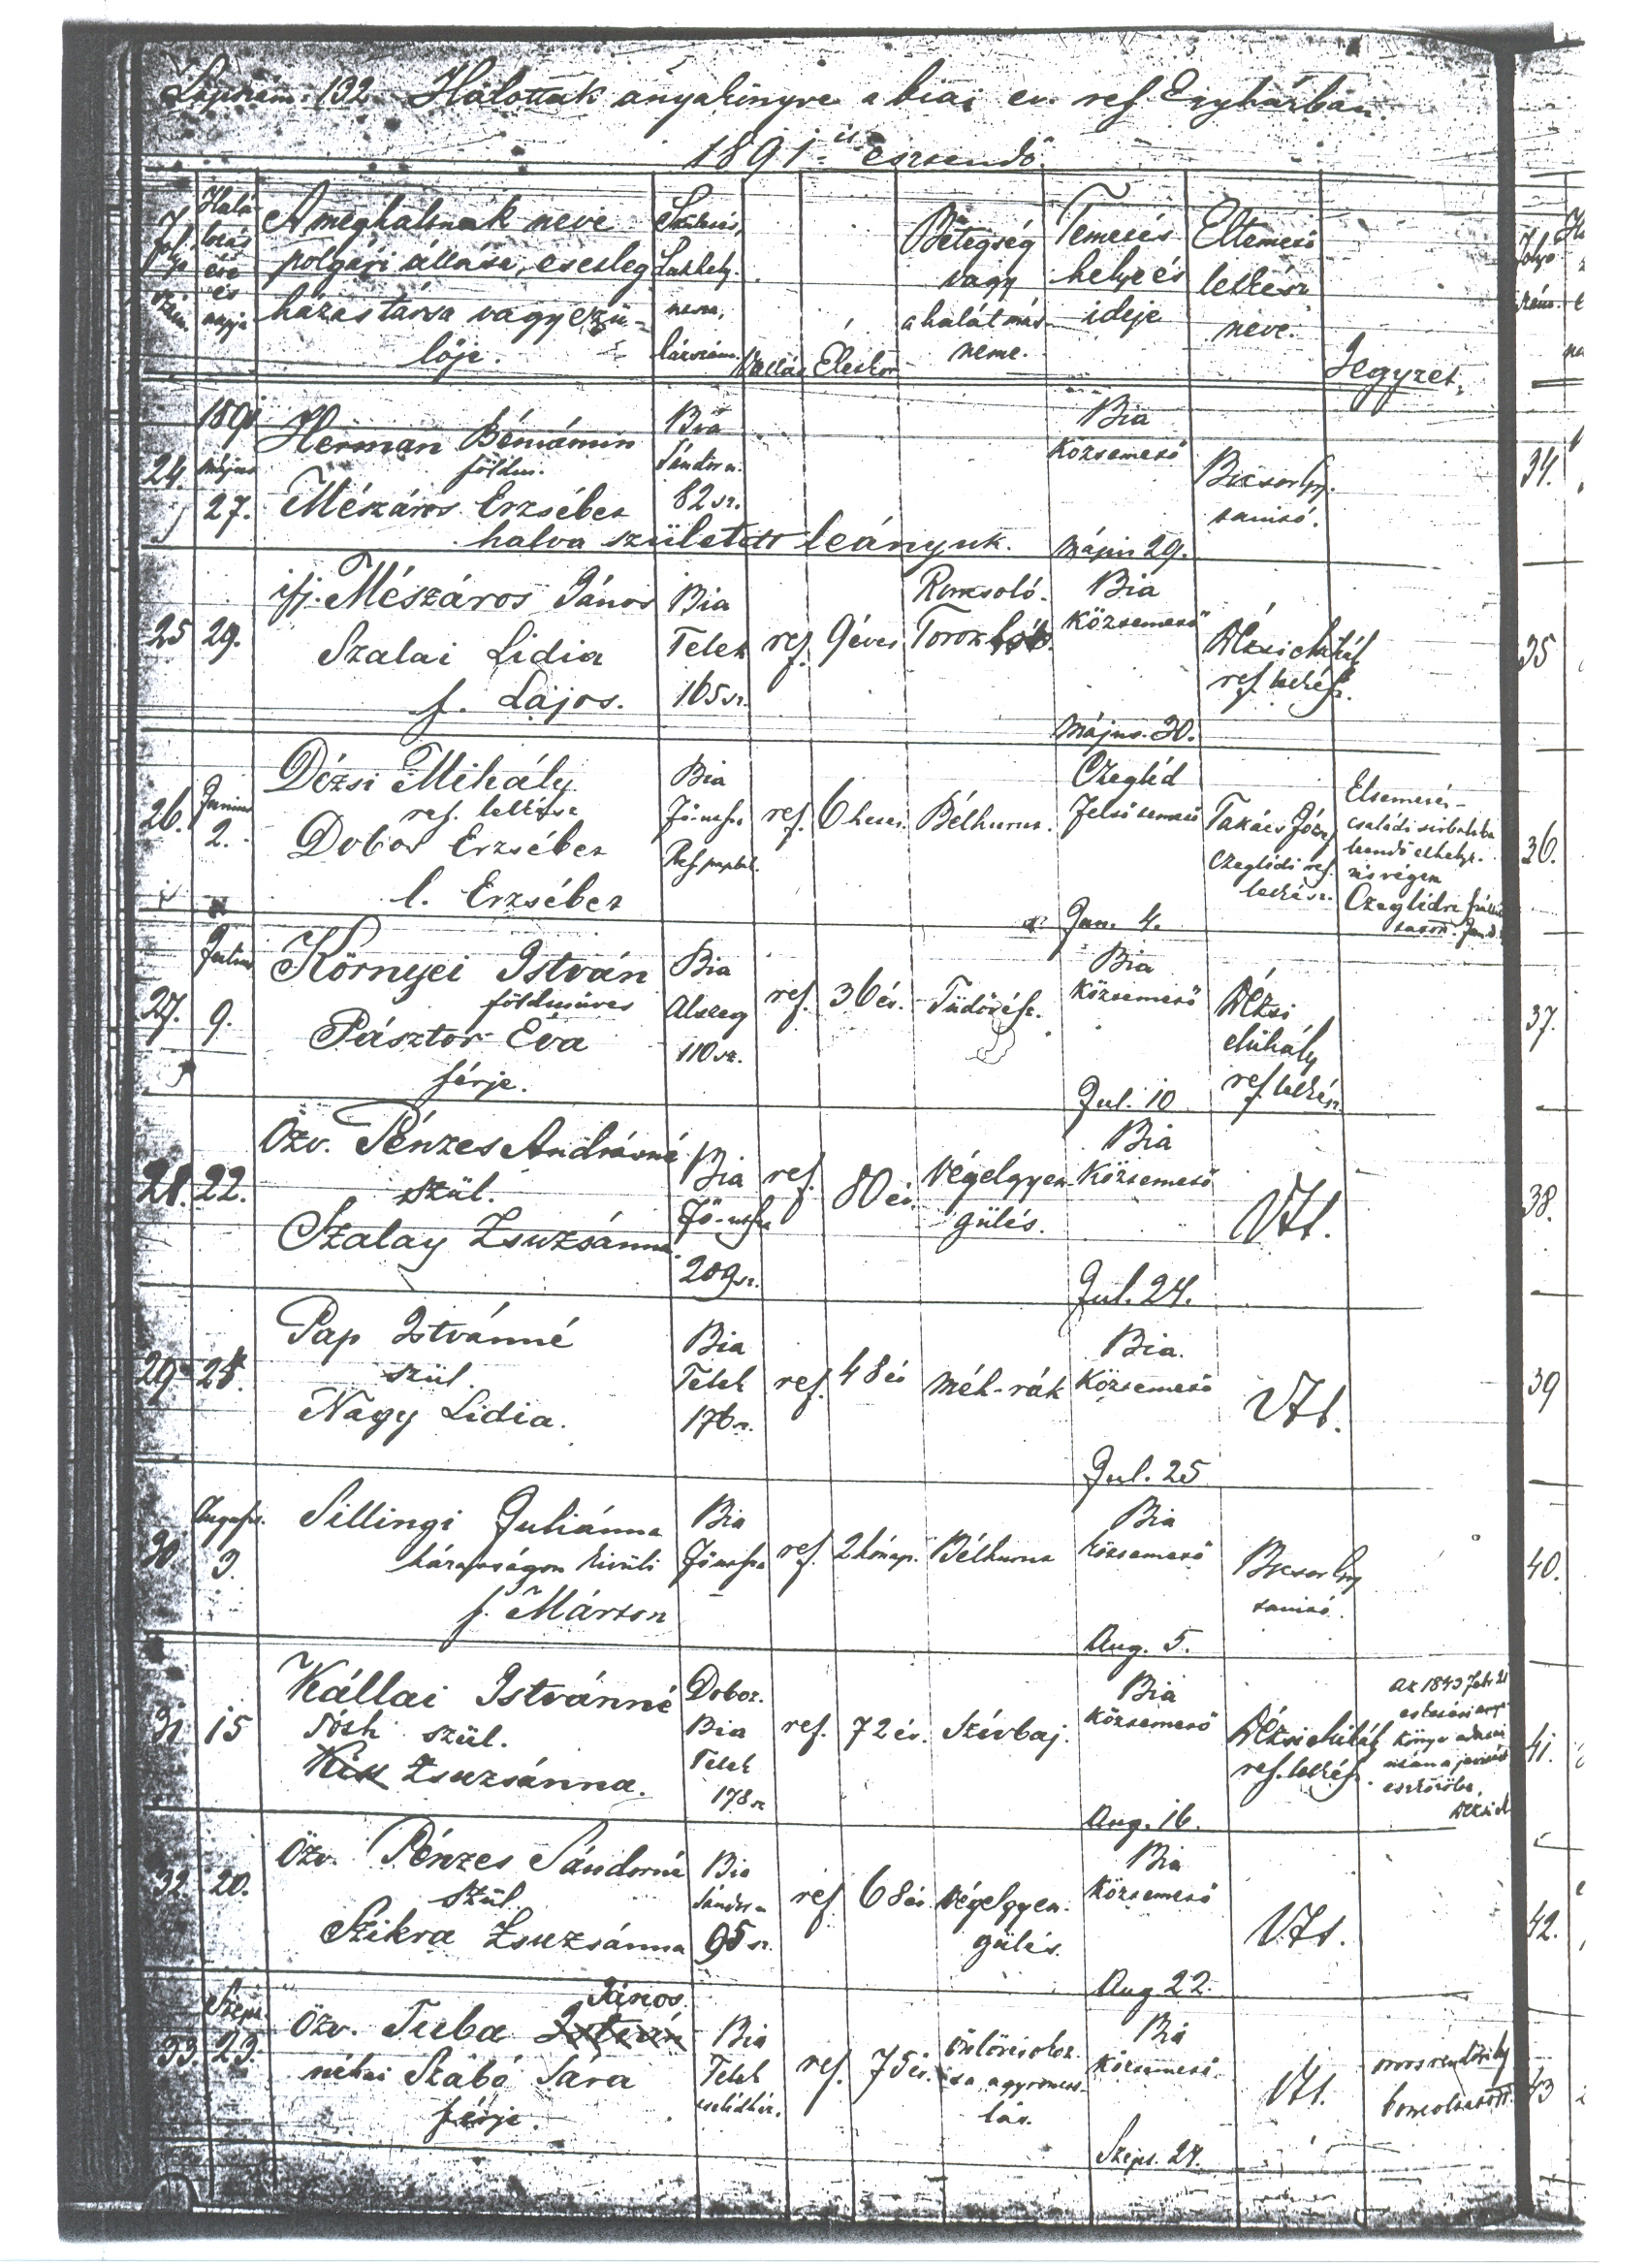 Lapszám: 132. Halottak anyakönyve a biai ev. ref. Egyházban.
1891-ik esztendő.
Folyó szám.
Halálozás éve és napja
A meghaltnak neve
polgári állása, esetleg
házastársa vagy szü-
lője.
Születés,
Lakhely.
neve,
házszám.
Vallás
Életkor
Betegség
vagy
a halál más
neme.
Temetés
helye és
ideje
Eltemető
lelkész
neve.
Jegyzet.
24.
1891
május
27.
Herman Béniámin
földm.
Mészáros Erzsébet
halva született leányuk.
Bia
Sándor u.
82 sz.
Bia
Köztemető
május 29.
tanító.
34.
25
29.
ifj. Mészáros János
Szalai Lidia
f. Lajos.
Bia
Telek
165 sz.
ref.
9 éves
Roncsoló.
Torokl
Bia
Köztemető
május. 30.
Dézsi Mihály
ref. lelkész.
35
26.
Junius
2.
Dézsi Mihály
ref. lelkész
Dobos Erzsébet
l. Erzsébet
Bia
Fő-utcza
Ref. paplak.
ref.
6 hetes.
Bélhurut.
Czegléd
Felső temető
Jun. 4.
Takács József
Czeglédi ref.
lelkész.
Eltemetés-
családi sírboltba
leendő elhelye-
zés végett
Czeglédre szállít-
tatott. Jun. 3.
36.
27.
Julius
9.
Környei István
földmüves
Pásztor Éva
férje.
Bia
Alszeg
110 sz.
ref.
36 év.
Tüdővész.
Bia
Köztemető
Jul. 10
Dézsi
Mihály
ref. lelkész
37.
28.
22.
Özv. Pénzes Andrásné
szül.
Szalay Zsuzsánna.
Bia
Fő-utcza
209 sz.
ref.
80 év.
Végelgyen-
gülés.
Bia
Köztemető
Jul. 24.
U.az.
38.
29
24.
Pap Istvánné
szül.
Nagy Lidia.
Bia
Telek
176 sz.
ref.
48 év
méh-rák
Bia.
Köztemető
Jul. 25
U.az.
39
30
Auguszt.
3.
Sillingi Juliánna
házasságon kivüli
f. Márton
Bia
Fő utcza
ref.
2 hónap.
Bélhurut
Bia
Köztemető
Aug. 5.
tanító.
40.
31
15
Kállai Istvánné
Tóth szül.
Kis Zsuzsánna.
Doboz.
Bia
Telek
178 sz
ref.
72 év.
Szívbaj.
Bia
Köztemető
Aug. 16.
Dézsi Mihály
ref. lelkész.
Az 1843 Febr 21
esketési anya-
könyv adatai
után a javítást
eszközölte,
Dézsi M
41.
32
20.
Özv. Pénzes Sándorné
szül.
Szikra Zsuzsánna
Bia
Sándor u
95 sz.
ref
68 év.
Végelgyen-
gülés.
Bia
Köztemető
Aug 22.
U.az.
42.
33.
Szept.
23.
János
Özv. Tuba István
néhai Szabó Sára
férje.
Bia
Telek
cselédház.
ref.
75 év.
Bia
köztemető.
Szept. 24.
U.az.
orvosrendőrileg
bonczoltatott
43